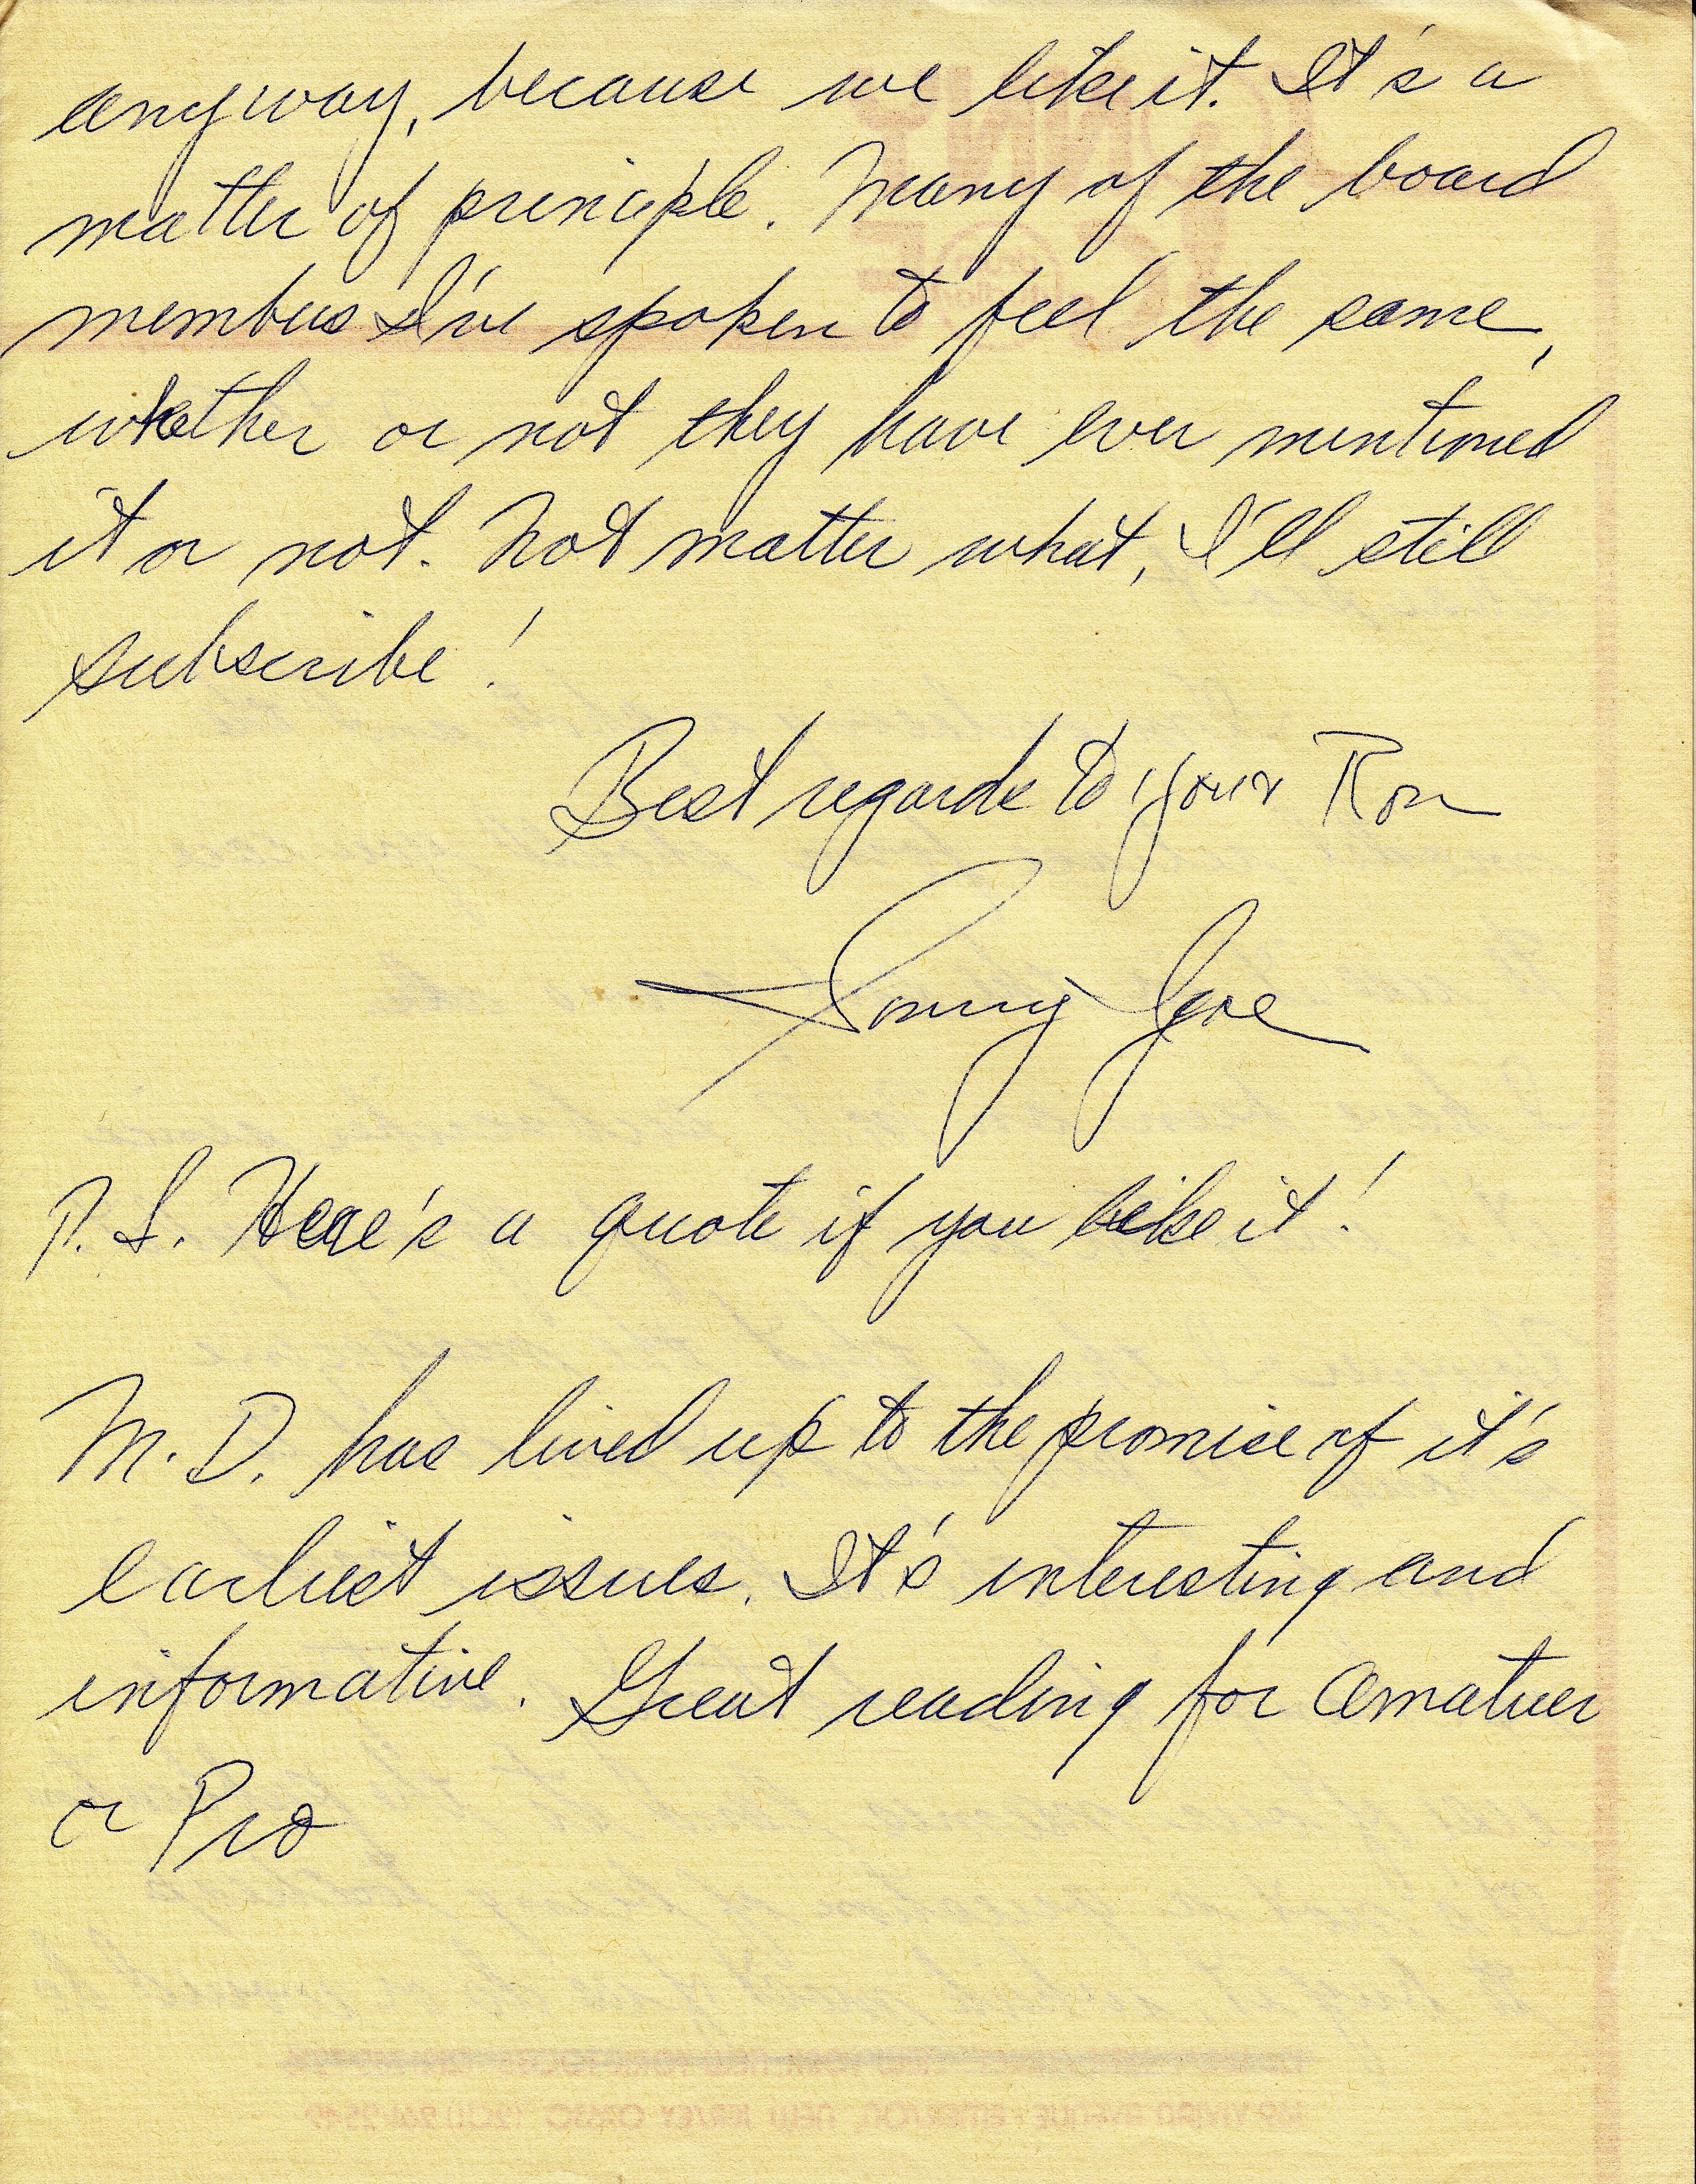 anyway, because we like it. It's a
matter of principle. Many of the board
members I've spoken to feel the same,
whether or not they have ever mentioned
it or not. Not matter what, I'll still
subscribe!
Best regards to your Ron
Sonny Igoe
P.S. Here's a quote if you like it!
M.D. has lived up to the promise of it's
earliest issues. It's interesting and
informative. Great reading for amatuer
or Pro
NEW JERSEY 07630 (201) 261-2549